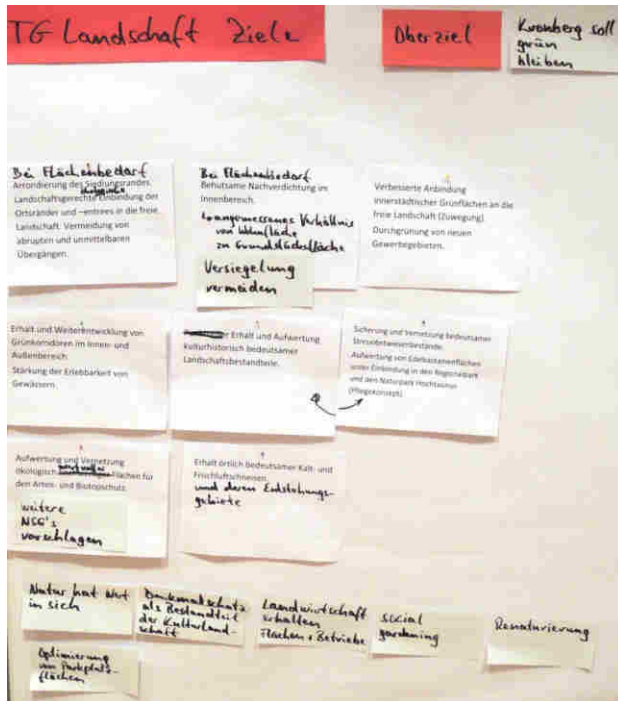 TG Landschaft Ziele
Oberziel
Kronberg soll
grün
bleiben
Bei Flächenbedarf
Arrondierung des Siedlungsrandes.
Landschaftsgerechte Einbindung der
Ortsränder und –entrees in die freie
Landschaft. Vermeidung von
abrupten und unmittelbaren
Übergängen.
Bei Flächenbedarf
Behutsame Nachverdichtung im
Innenbereich.
angemessenes Verhältnis
von Wohnfläche
zu Grundstücksfläche
Versiegelung
vermeiden
Verbesserte Anbindung
innerstädtischer Grünflächen an die
freie Landschaft (Zuwegung)
Durchgrünung von neuen
Gewerbegebieten.
Erhalt und Weiterentwicklung von
Grünkorridoren im Innen- und
Außenbereich.
Stärkung der Erlebbarkeit von
Gewässern.
Erhalt und Aufwertung
kulturhistorisch bedeutsamer
Landschaftsbestandteile.
Sicherung und Vernetzung bedeutsamer
Streuobstwiesenbestände.
Aufwertung von Edelkastanienflächen
unter Einbindung in den Regionalpark
und den Naturpark Hochtaunus
(Pflegekonzept)
Aufwertung und Vernetzung
ökologisch wertvoller Flächen für
den Arten- und Biotopschutz.
weitere
NSG's
vorschlagen
Erhalt örtlich bedeutsamer Kalt- und
Frischluftschneisen.
und deren Entstehungs-
gebiete
Natur hat Wert
in sich
Denkmalschutz
als Bestandteil
der Kulturland-
schaft
Landwirtschaft
erhalten
Flächen + Betriebe
social
gardening
Renaturierung
Optimierung
von Parkplatz-
flächen